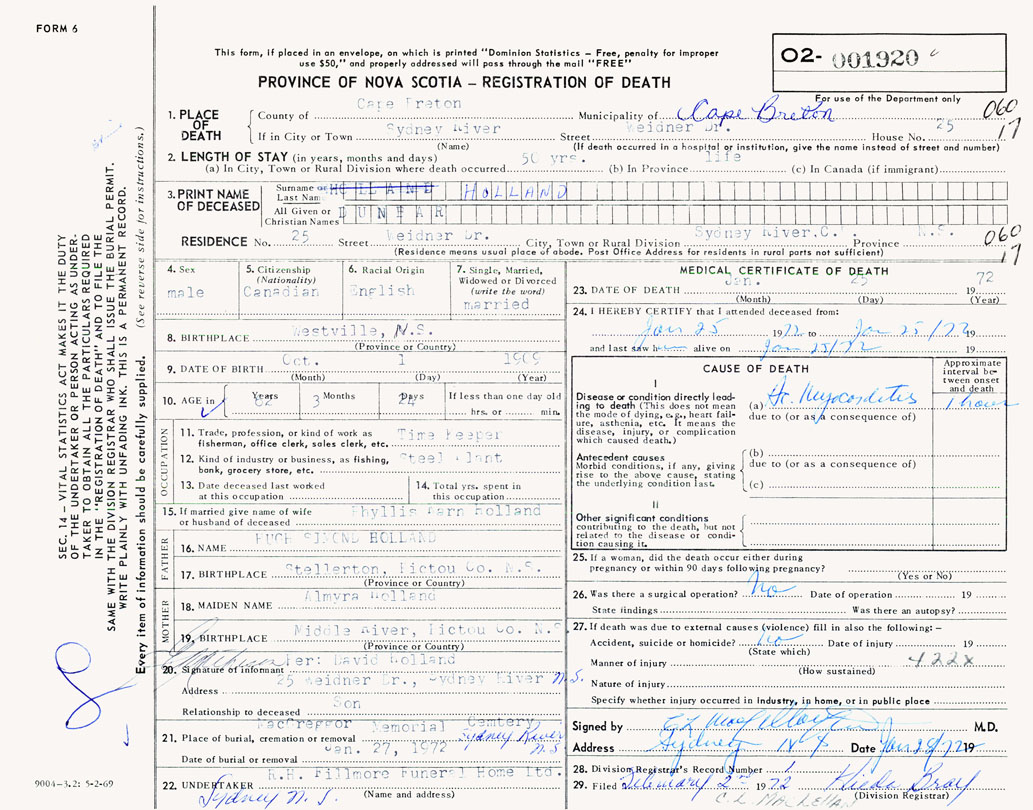 FORM 6
This form, if placed in an envelope, on which is printed "Dominion Statistics – Free, penalty for improper
use $50," and properly addressed will pass through the mail "FREE"
O2- 001920
PROVINCE OF NOVA SCOTIA – REGISTRATION OF DEATH
For use of the Department only
1. PLACE OF DEATH
County of Cape Breton Municipality of Cape Breton 060
If in City or Town Sydney River Street Weidner Dr. House No. 25 17
(Name) (If death occurred in a hospital or institution, give the name instead of street and number)
2. LENGTH OF STAY (in years, months and days) 50 yrs. life
(a) In City, Town or Rural Division where death occurred (b) In Province (c) In Canada (if immigrant)
3. PRINT NAME OF DECEASED
Surname or Last Name HOLLAND HOLLAND
All Given or Christian Names DUNBAR
RESIDENCE No. 25 Street Weidner Dr. City, Town or Rural Division Sydney River, C.B. Province N.S. 060
(Residence means usual place of abode. Post Office Address for residents in rural parts not sufficient) 17
4. Sex
male
5. Citizenship
(Nationality)
Canadian
6. Racial Origin
English
7. Single, Married,
Widowed or Divorced
(write the word)
married
8. BIRTHPLACE Westville, N.S.
(Province or Country)
9. DATE OF BIRTH Oct. 1 1909
(Month) (Day) (Year)
10. AGE in Years 62 Months 3 Days 24 If less than one day old
hrs. or min.
OCCUPATION
11. Trade, profession, or kind of work as Time Keeper
fisherman, office clerk, sales clerk, etc.
12. Kind of industry or business, as fishing, Steel Plant
bank, grocery store, etc.
13. Date deceased last worked
at this occupation
14. Total yrs. spent in
this occupation
15. If married give name of wife Phyllis Warn Holland
or husband of deceased
FATHER
16. NAME HUGH SIMOND HOLLAND
17. BIRTHPLACE Stellerton, Pictou Co. N.S.
(Province or Country)
MOTHER
18. MAIDEN NAME Almyra Holland
19. BIRTHPLACE Middle River, Pictou Co. N.S.
(Province or Country)
Per: David Holland
20. Signature of informant
Address 25 Weidner Dr., Sydney River N.S.
Relationship to deceased Son
21. Place of burial, cremation or removal MacGreggor Memorial Cemtery Sydney River N.S.
Date of burial or removal Jan. 27, 1972
22. UNDERTAKER R.H. Fillmore Funeral Home Ltd.
Sydney N.S. (Name and address)
MEDICAL CERTIFICATE OF DEATH
23. DATE OF DEATH Jan. 25 1972
(Month) (Day) (Year)
24. I HEREBY CERTIFY that I attended deceased from:
Jan 25 1972 to Jan 25/72 19
and last saw him alive on Jan 25/72 19
CAUSE OF DEATH
Approximate
interval be-
tween onset
and death
I
Disease or condition directly lead-
ing to death (This does not mean
the mode of dying, e.g., heart fail-
ure, asthenia, etc. It means the
disease, injury, or complication
which caused death.)
(a) Ac. Myocarditis 1 hour
due to (or as a consequence of)
Antecedent causes
Morbid conditions, if any, giving
rise to the above cause, stating
the underlying condition last.
(b)
due to (or as a consequence of)
(c)
II
Other significant conditions
contributing to the death, but not
related to the disease or condi-
tion causing it.
25. If a woman, did the death occur either during
pregnancy or within 90 days following pregnancy?
(Yes or No)
26. Was there a surgical operation? No Date of operation 19
State findings Was there an autopsy?
27. If death was due to external causes (violence) fill in also the following: –
Accident, suicide or homicide? No Date of injury 19
(State which)
Manner of injury 422x
(How sustained)
Nature of injury
Specify whether injury occurred in industry, in home, or in public place
Signed by M.D.
Address Sydney N S Date Jan 28/72 19
28. Division Registrar's Record Number 1
29. Filed February 2nd 1972 Hilda Bray
(Division Registrar)
C. L. MACLELLAN
SEC. 14 – VITAL STATISTICS ACT MAKES IT THE DUTY
OF THE UNDERTAKER OR PERSON ACTING AS UNDER-
TAKER TO OBTAIN ALL THE PARTICULARS REQUIRED
IN THE "REGISTRATION OF DEATH" AND TO FILE THE
SAME WITH THE DIVISION REGISTRAR WHO SHALL ISSUE THE BURIAL PERMIT.
WRITE PLAINLY WITH UNFADING INK. THIS IS A PERMANENT RECORD.
Every item of information should be carefully supplied. (See reverse side for instructions.)
9004-3.2: 5-2-69